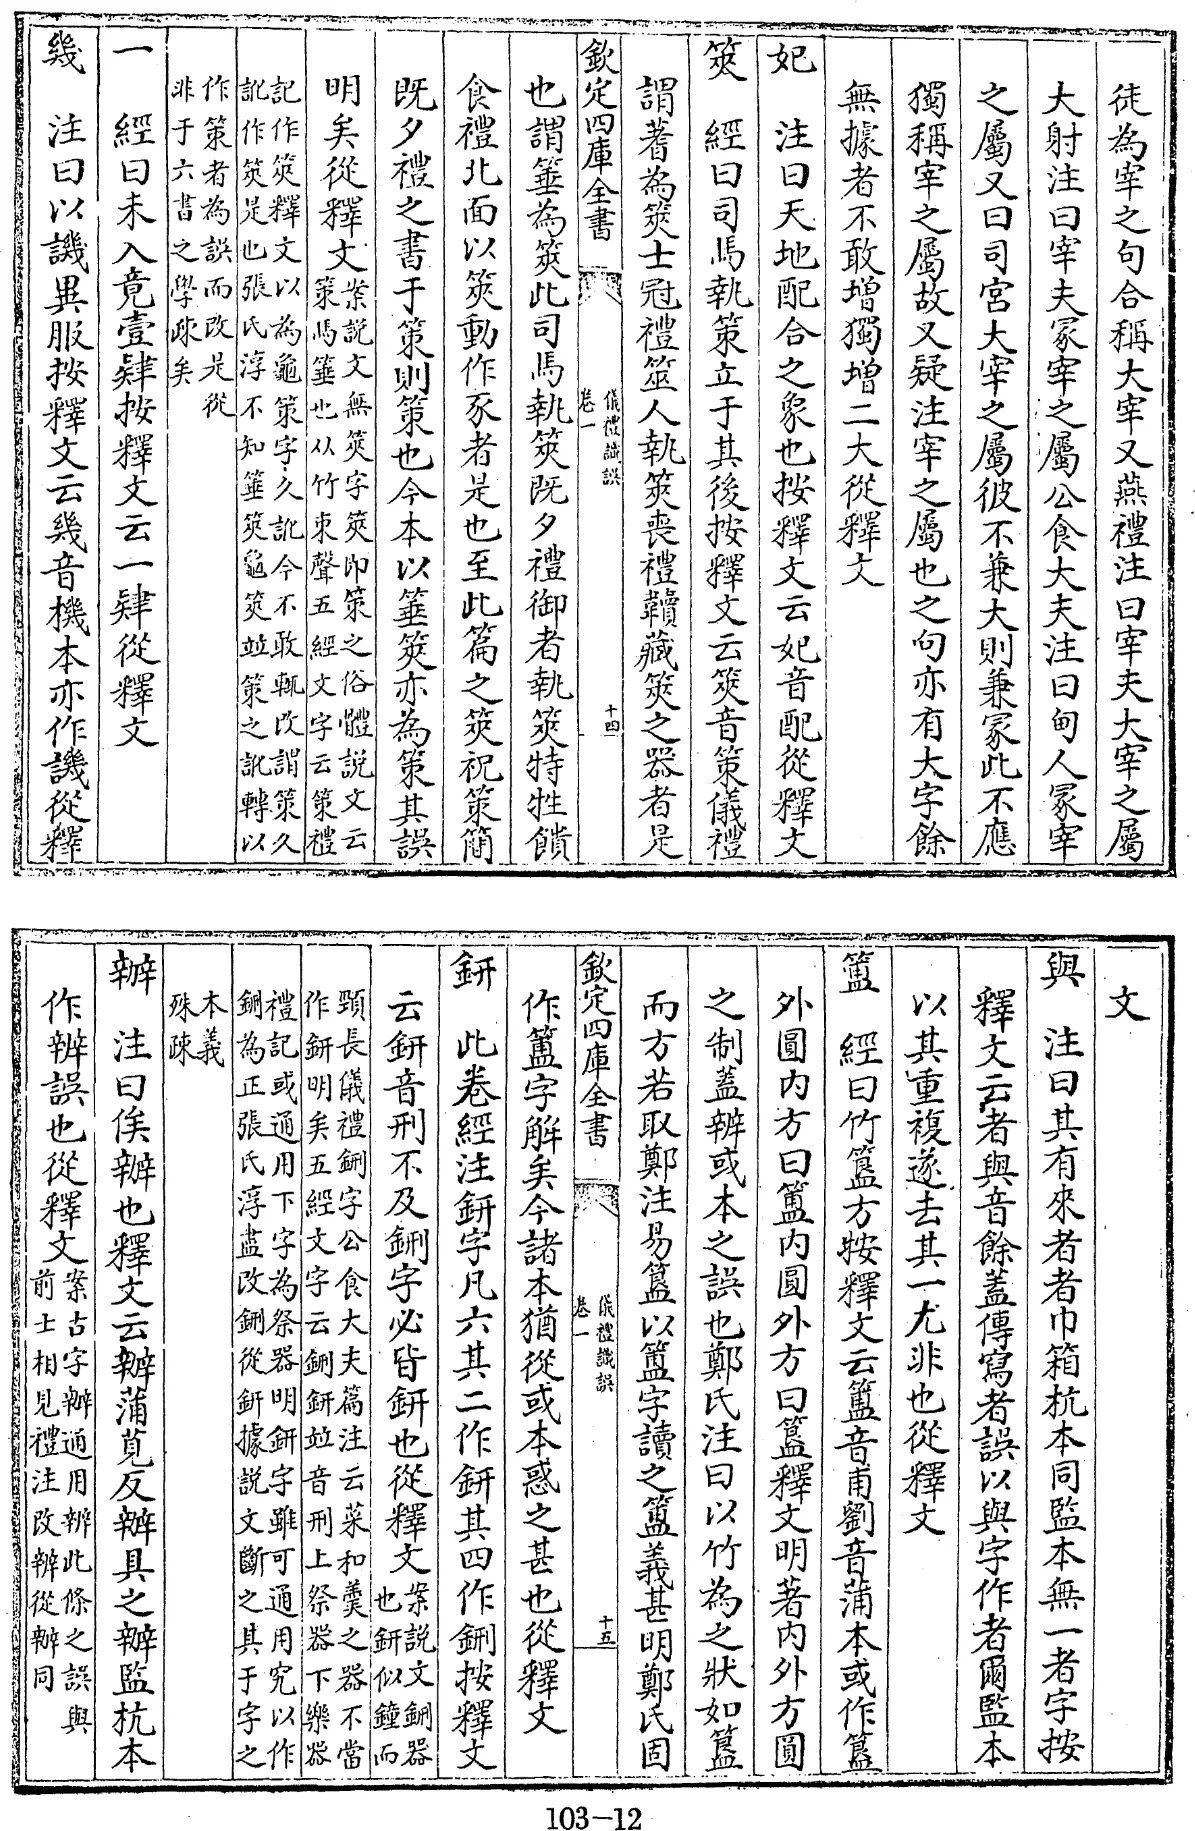 徒為宰之句合稱大宰又燕禮注曰宰夫大宰之屬
大射注曰宰夫冢宰之屬公食大夫注曰甸人冢宰
之屬又曰司宮大宰之屬彼不兼大則兼冢此不應
獨稱宰之屬故又疑注宰之屬也之句亦有大字餘
無據者不敢增獨增二大從釋文
妃　注曰天地配合之象也按釋文云妃音配從釋文
筴　經曰司馬執策立于其後按釋文云筴音策儀禮
謂蓍為筴士冠禮筮人執筴喪禮韇藏筴之器者是
欽定四庫全書
儀禮識誤
卷一
十四
也謂箠為筴此司馬執筴既夕禮御者執筴特牲饋
食禮北面以筴動作豕者是也至此篇之筴祝策簡
既夕禮之書于策則策也今本以箠筴亦為策其誤
明矣從釋文
案説文無筴字筴即策之俗體説文云
策馬箠也从竹朿聲五經文字云策禮
記作筴釋文以為龜策字久訛今不敢輒改謂策久
訛作筴是也張氏淳不知箠筴龜筴並策之訛轉以
作策者為誤而改是從
非于六書之學疎矣
一　經曰未入竟壹肄按釋文云一肄從釋文
幾　注曰以譏異服按釋文云幾音機本亦作譏從釋
文
與　注曰其有來者者巾箱杭本同監本無一者字按
釋文云者與音餘蓋傳寫者誤以與字作者爾監本
以其重複遂去其一尤非也從釋文
簠　經曰竹簋方按釋文云簠音甫劉音蒲本或作簋
外圓内方曰簠内圓外方曰簋釋文明著内外方圓
之制蓋辨或本之誤也鄭氏注曰以竹為之狀如簋
而方若取鄭注易簋以簠字讀之簠義甚明鄭氏固
欽定四庫全書
儀禮識誤
卷一
十五
作簠字解矣今諸本猶從或本惑之甚也從釋文
鈃　此卷經注鈃字凡六其二作鈃其四作鉶按釋文
云鈃音刑不及鉶字必皆鈃也從釋文
案説文鉶器
也鈃似鐘而
頸長儀禮鉶字公食大夫篇注云菜和羹之器不當
作鈃明矣五經文字云鉶鈃並音刑上祭器下樂器
禮記或通用下字為祭器明鈃字雖可通用究以作
鉶為正張氏淳盡改鉶從鈃據説文斷之其于字之
本義
殊疎
辦　注曰俟辦也釋文云辦蒲莧反辦具之辦監杭本
作辨誤也從釋文
案古字辦通用辨此條之誤與
前士相見禮注改辨從辦同
103-12